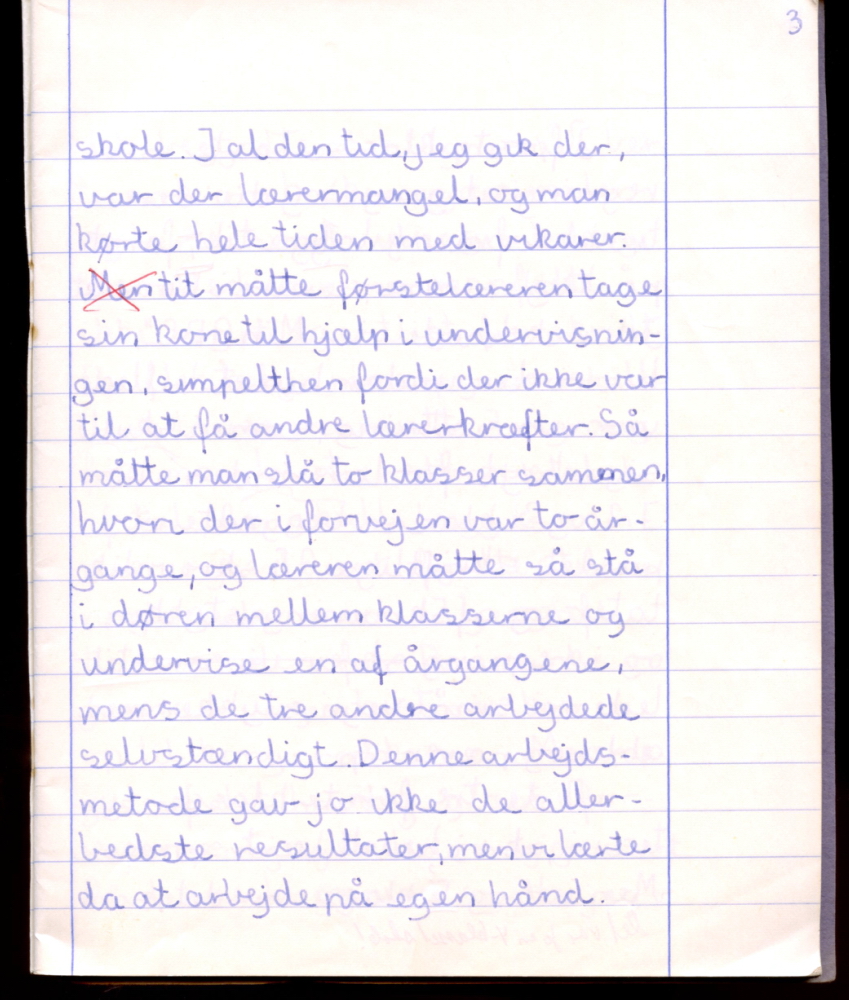 3
skole. I al den tid, jeg gik der,
var der lærermangel, og man
kørte hele tiden med vikarer.
Men tit måtte førstelæreren tage
sin kone til hjælp i undervisnin-
gen, simpelthen fordi der ikke var
til at få andre lærerkræfter. Så
måtte man slå to klasser sammen,
hvori der i forvejen var to år-
gange, og læreren måtte så stå
i døren mellem klasserne og
undervise en af årgangene,
mens de tre andre arbejdede
selvstændigt. Denne arbejds-
metode gav jo ikke de aller-
bedste resultater, men vi lærte
da at arbejde på egen hånd.